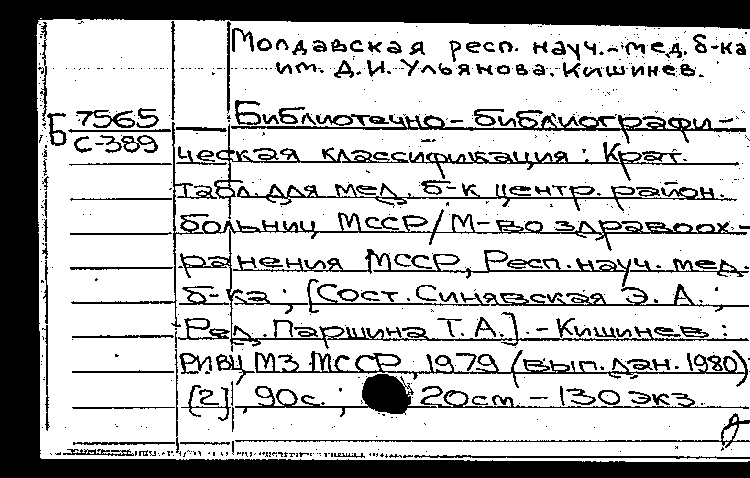 Молдавская респ. науч.-мед. б-ка
им. Д.И. Ульянова. Кишинев.
Б 7565
С-389
Библиотечно-библиографи-
ческая классификация: Крат.
табл. для мед. б-к центр. район.
больниц МССР/М-во здравоох-
ранения МССР, Респ. науч. мед.
б-ка; [Сост. Синявская Э. А.;
Ред. Паршина Т.А.]. - Кишинев:
РИВЦ МЗ МССР, 1979 (вып. дан. 1980)
[2], 90с.; 20см - 130 экз.